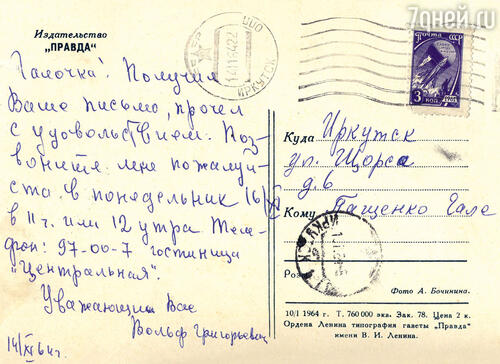 7дней.ru
Издательство
„ПРАВДА“
Галочка! Получил
Ваше письмо, прочел
с удовольствием. Поз-
воните мне пожалуй-
ста в понедельник (16)
в 11 ч. или 12 утра Теле-
фон: 97-00-7 гостиница
"Центральная".
Уважающий Вас
Вольф Григорьевич
14/XI 64 г.
ИРКУТСК
ПОЧТА СССР
3 КОП.
Куда Иркутск
ул. Щорса
д. 6
Кому Пащенко Гале
ИРКУТСК
Фото А. Бочинина.
10/I 1964 г. Т. 760 000 экз. Зак. 78. Цена 2 к.
Ордена Ленина типография газеты „Правда“
имени В. И. Ленина.